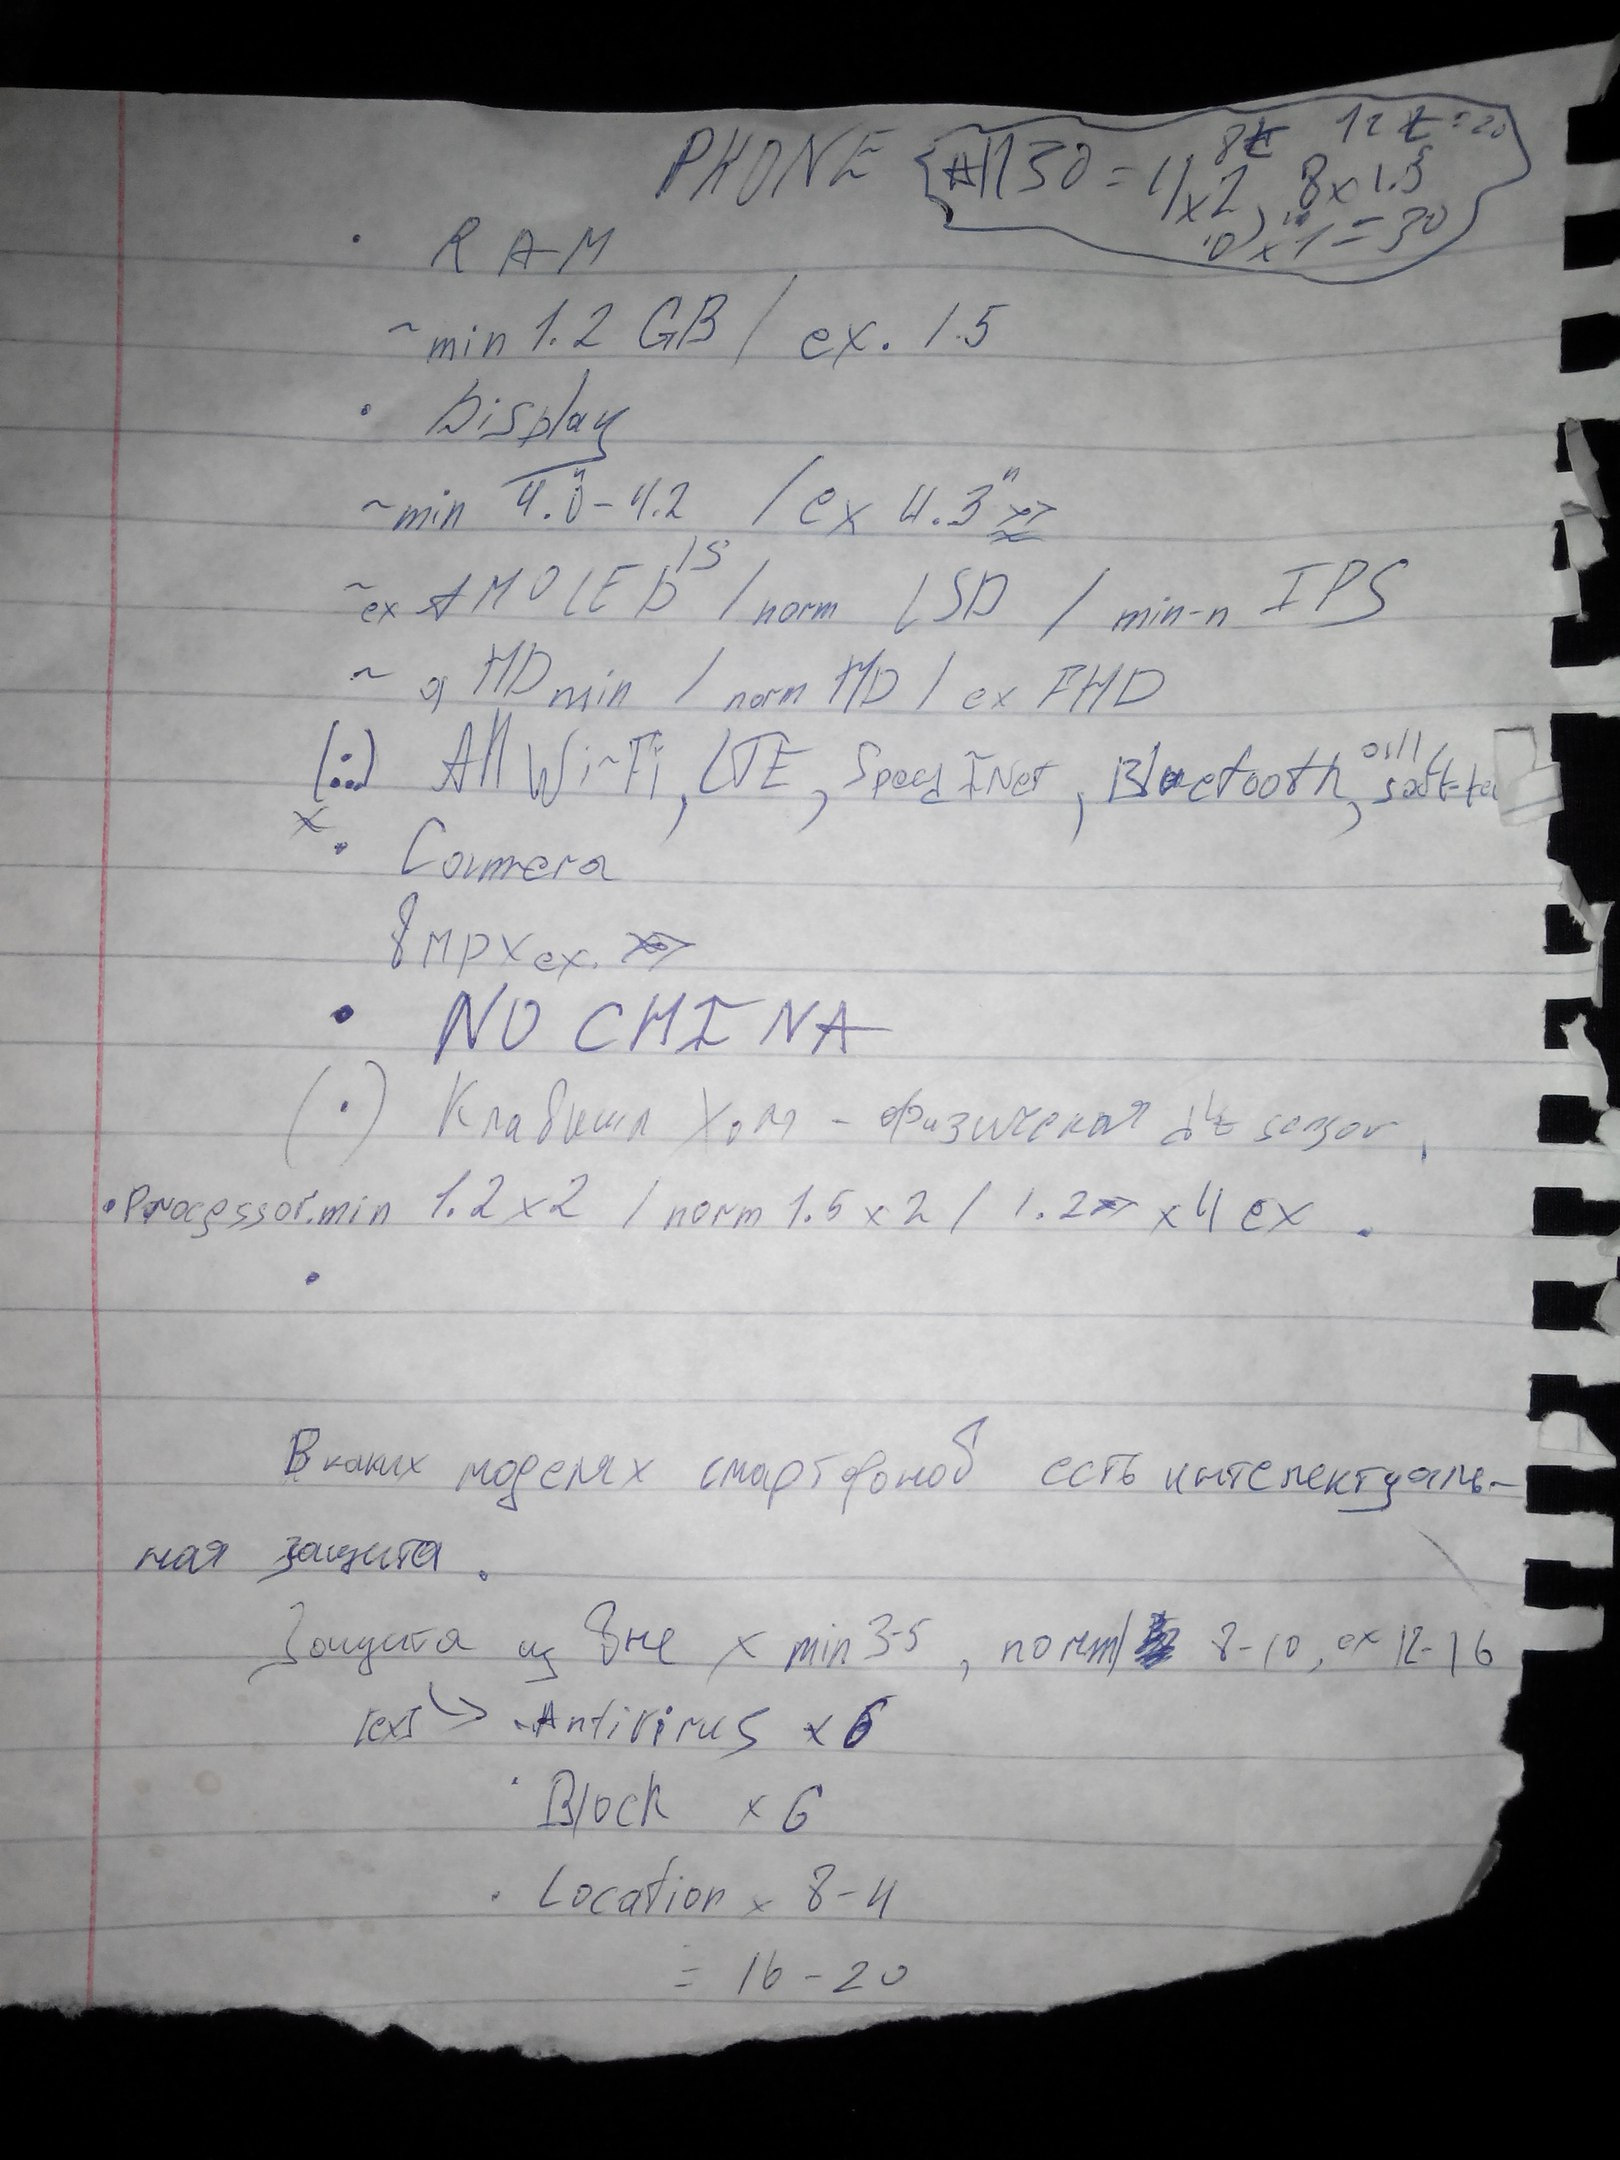 PHONE All 30 = 11x2, 8x1.5
10x1=30
• RAM
~min 1.2 GB / ex. 1.5
• Display
~min 4.0"-4.2 / ex 4.3"
~ex AMOLED / norm LSD / min-n IPS
~ qHD min / norm HD / ex FHD
(∴) All Wi-Fi, LTE, Speed INet, Bluetooth,
x • Camera
8 мрх ex.
• NO CHINA
(•) Клавиша Хом - физическая sensor,
• Processor. min 1.2x2 / norm 1.5x2 / 1.2 x4 ex .
•
В каких моделях смартфонов есть интелектуаль-
ная защита.
Защита из вне x min 3-5, norm 8-10, ex 12-16
[ex] Antivirus x6
• Block x 6
• Location x 8-4
= 16-20